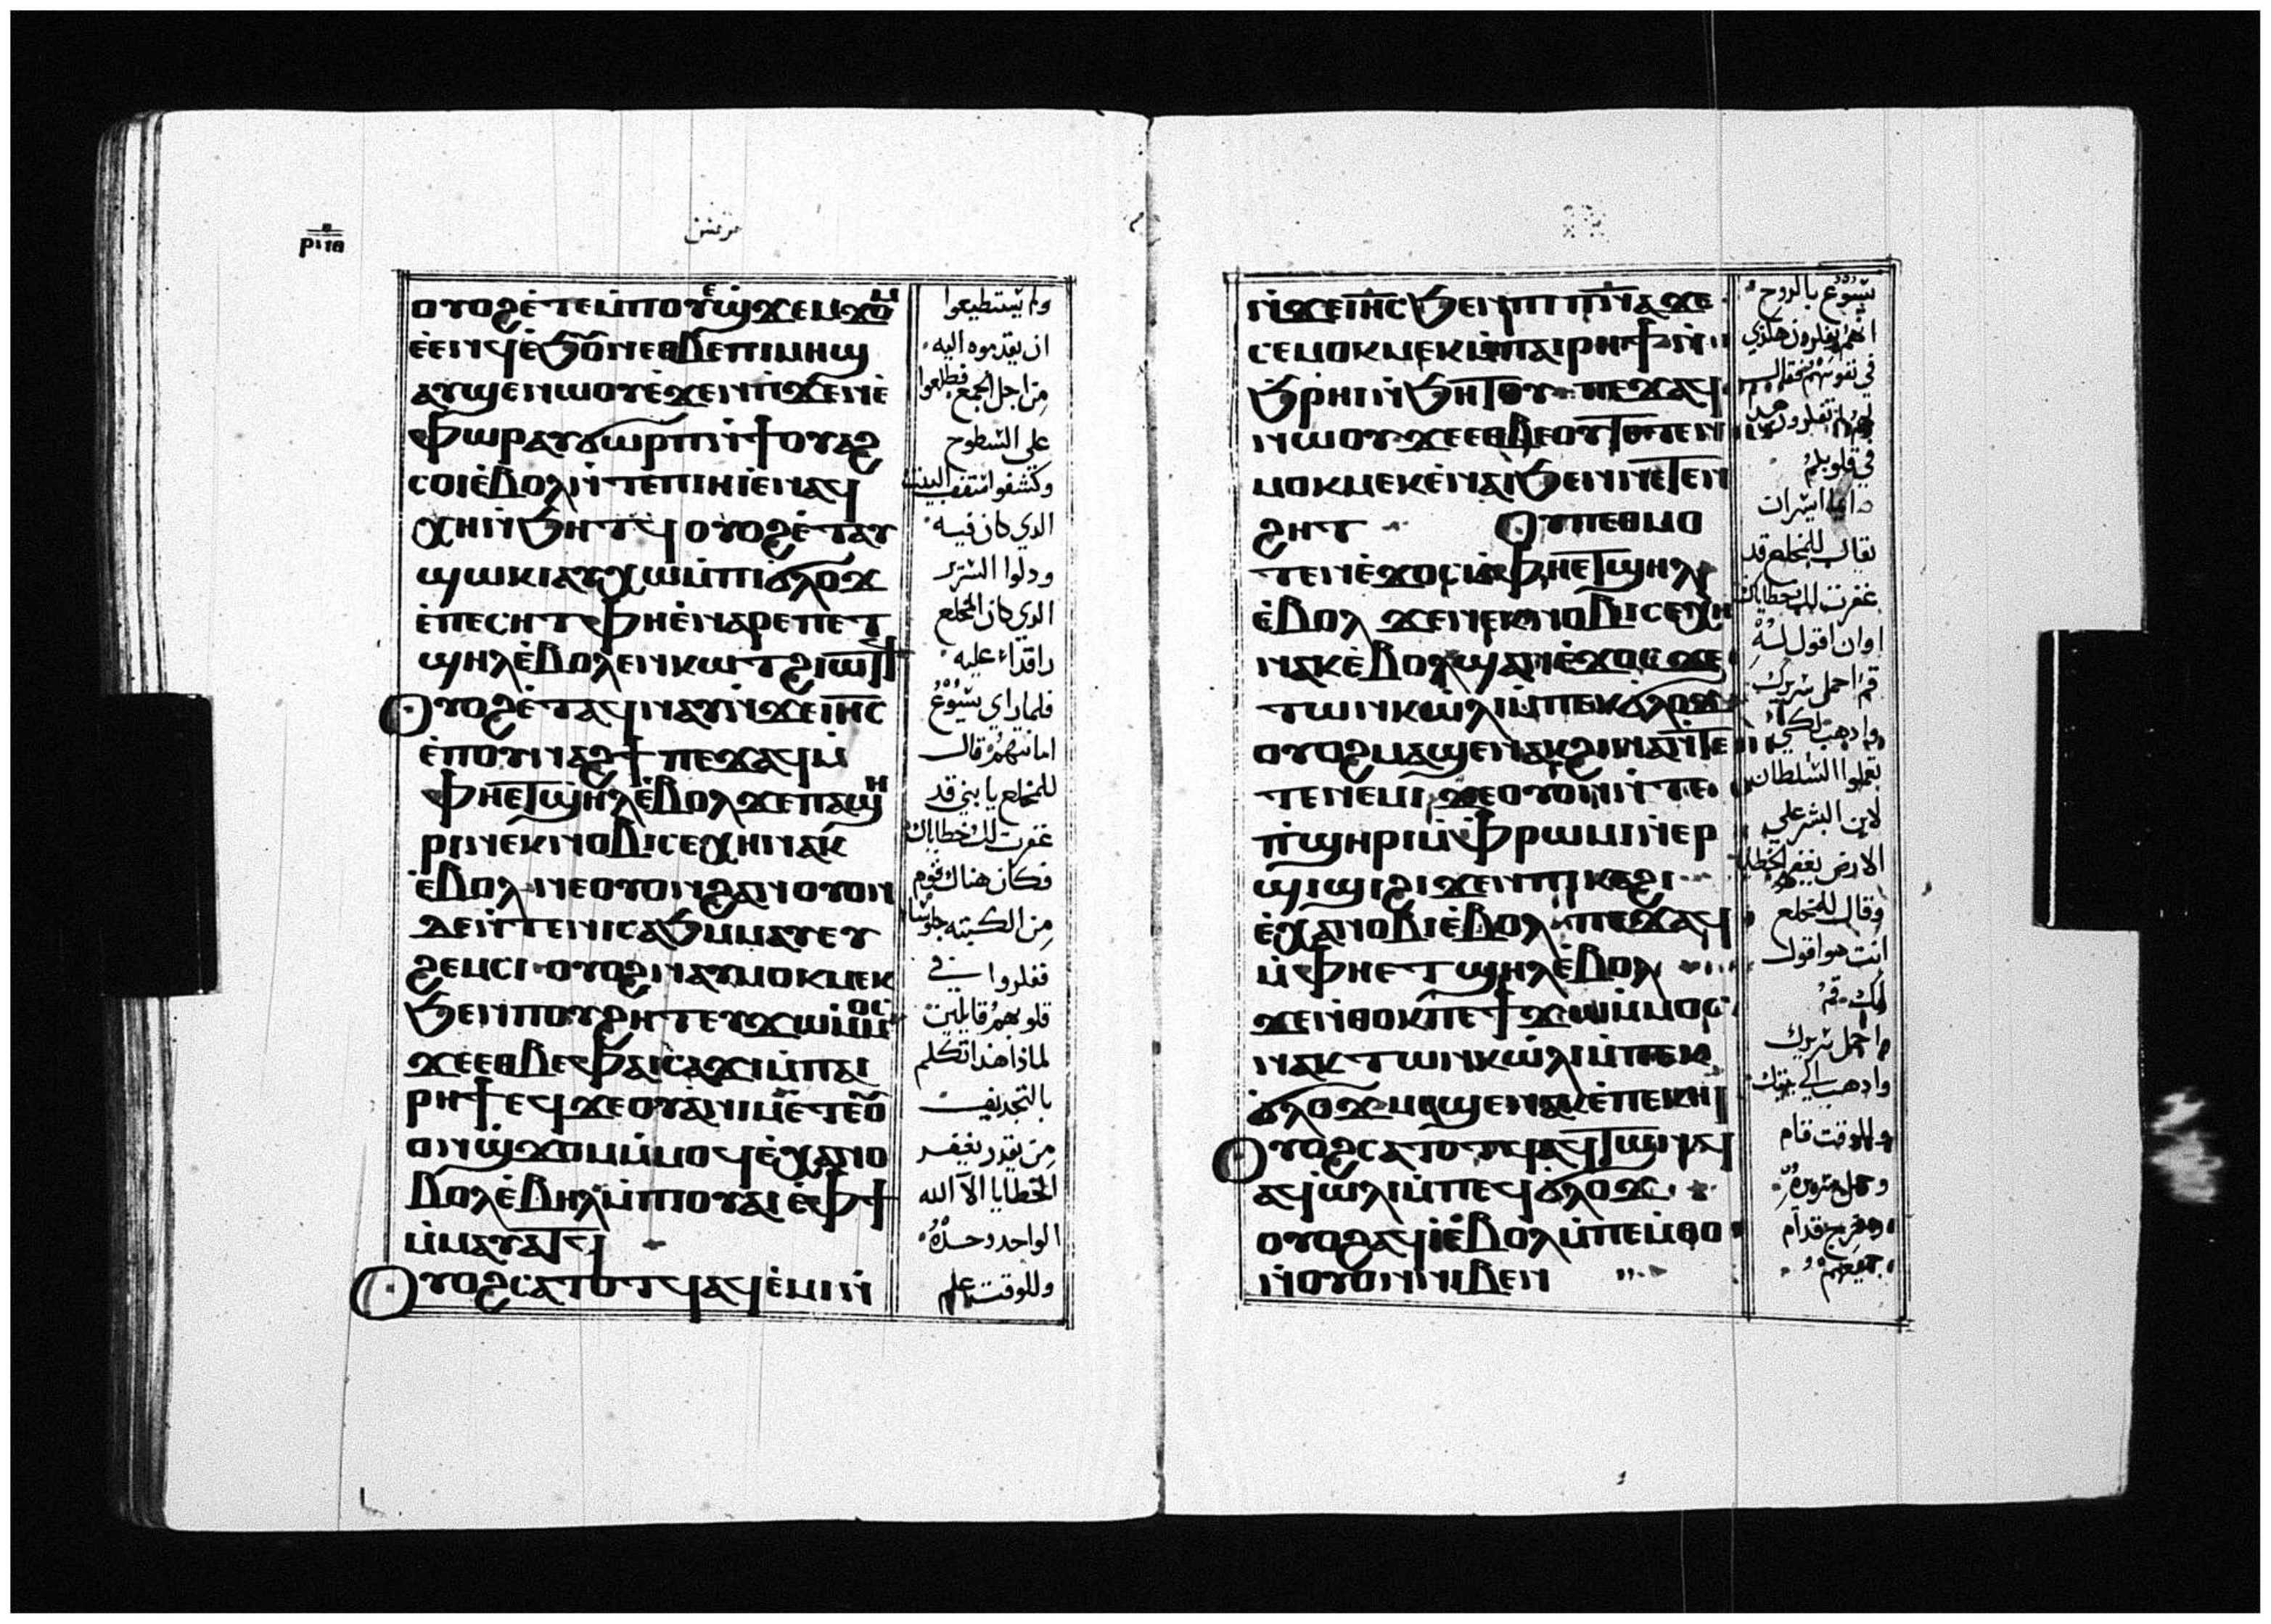 ⲣⲓⲑ
مرقس
ⲟⲩⲟϩ ⲉ̀ⲧⲉⲙ̀ⲡⲟⲩϣ̀ϫⲉⲙϫⲟⲙ
ⲉ̀ⲉⲛϥ ⲉ̀ϧⲟⲩⲛ ⲉⲑⲃⲉ ⲡⲓⲙⲏϣ
ⲁⲩϣⲉⲛⲱⲟⲩ ⲉ̀ϫⲉⲛ ⲡⲓϫⲉⲛⲉ
ⲫⲱⲣ ⲁⲩϭⲱⲣⲡ ⲛ̀ϯⲟⲩⲁϩ
ⲥⲟⲓ ⲉ̀ⲃⲟⲗ ⲛ̀ⲧⲉ ⲡⲓⲏⲓ ⲉ̀ⲛⲁϥ
ⲭⲏ ⲛ̀ϧⲏⲧϥ ⲟⲩⲟϩ ⲉ̀ⲧⲁⲩ
ϣⲱⲕⲓ ⲁⲩⲭⲱ ⲙ̀ⲡⲓϭⲗⲟϫ
ⲉ̀ⲡⲉⲥⲏⲧ ⲫⲏ ⲉ̀ⲛⲁⲣⲉ ⲡⲉⲧ
ϣⲏⲗ ⲉ̀ⲃⲟⲗ ⲉⲛⲕⲱⲧ ϩⲓⲱⲧϥ
ⲟⲩⲟϩ ⲉ̀ⲧⲁϥⲛⲁⲩ ⲛ̀ϫⲉ ⲓⲏⲥ
ⲉ̀ⲡⲟⲩⲛⲁϩϯ ⲡⲉϫⲁϥ ⲙ̀
ⲫⲏⲉⲧϣⲏⲗ ⲉ̀ⲃⲟⲗ ϫⲉ ⲡⲁϣⲏ
ⲣⲓ ⲛⲉⲕⲛⲟⲃⲓ ⲥⲉⲭⲏ ⲛⲁⲕ
ⲉ̀ⲃⲟⲗ ⲛⲉ ⲟⲩⲟⲛ ϩⲁⲛⲟⲩⲟⲛ
ⲇⲉ ⲛ̀ⲧⲉ ⲛⲓⲥⲁϧ ⲙ̀ⲙⲁⲩ ⲉⲩ
ϩⲉⲙⲥⲓ ⲟⲩⲟϩ ⲛⲁⲩⲙⲟⲕⲙⲉⲕ
ϧⲉⲛ ⲡⲟⲩϩⲏⲧ ⲉⲩϫⲱ ⲙ̀ⲙⲟⲥ
ϫⲉ ⲉⲑⲃⲉ ⲫⲁⲓ ⲥⲁϫⲓ ⲙ̀ⲡⲁⲓ
ⲣⲏϯ ⲉϥϫⲉⲟⲩⲁ ⲛⲓⲙ ⲉⲧⲉ ⲟⲩ
ⲟⲛ ϣ̀ϫⲟⲙ ⲙ̀ⲙⲟϥ ⲉ̀ⲭⲁ ⲛⲟ
ⲃⲟⲗ ⲉ̀ⲃⲏⲗ ⲙ̀ⲡⲓⲟⲩⲁⲓ ⲉ̀ⲫϯ
ⲙ̀ⲙⲁⲩⲁⲧϥ
ⲟⲩⲟϩ ⲥⲁⲧⲟⲧϥ ⲁϥⲉ̀ⲙⲓ ⲛ̀
ولم يستطيعوا
ان يقدموه اليه
من اجل الجمع فطلعوا
على السطوح
وكشفوا سقف البيت
الدي كان فيه
ودلوا السرير
الدي كان المخلع
راقداء عليه
فلما راي يسوع
امانتهم قال
للمخلع يا بني قد
غفرت لك خطاياك
فكان هناك قوم
من الكتبه جلوسا
ففكروا في
قلوبهم قايلين
لماذا هدا تكلم
بالتجديف
من يقدر يغفر
الخطايا الا الله
الواحد وحده
وللوقت علم
ⲛ̀ϫⲉ ⲓⲏⲥ ϧⲉⲛ ⲡⲓⲡⲛⲁ ϫⲉ
ⲥⲉⲙⲟⲕⲙⲉⲕ ⲙ̀ⲡⲁⲓⲣⲏϯ ⲛ̀
ϧⲣⲏⲓ ⲛ̀ϧⲏⲧⲟⲩ ⲡⲉϫⲁϥ
ⲛⲱⲟⲩ ϫⲉ ⲉⲑⲃⲉ ⲟⲩ ⲧⲉⲧⲉⲛ
ⲙⲟⲕⲙⲉⲕ ⲉ̀ⲛⲁⲓ ϧⲉⲛ ⲛⲉⲧⲉⲛ
ϩⲏⲧ ⲟⲩ ⲡⲉⲑⲙⲟ
ⲧⲉⲛ ⲉ̀ϫⲟⲥ ⲙ̀ⲫⲏⲉⲧϣⲏⲗ
ⲉ̀ⲃⲟⲗ ϫⲉ ⲛⲉⲕⲛⲟⲃⲓ ⲥⲉⲭⲏ
ⲛⲁⲕ ⲉ̀ⲃⲟⲗ ϣⲁⲛ ⲉ̀ϫⲟⲥ ϫⲉ
ⲧⲱⲛⲕ ⲱ̀ⲗⲓ ⲙ̀ⲡⲉⲕϭⲗⲟϫ
ⲟⲩⲟϩ ⲙⲁϣⲉⲛⲁⲕ ϩⲓⲛⲁ ⲛ̀ⲧⲉ
ⲧⲉⲛⲉⲙⲓ ϫⲉ ⲟⲩⲟⲛ ⲛ̀ⲧⲉ
ⲡ̀ϣⲏⲣⲓ ⲙ̀ⲫⲣⲱⲙⲓ ⲛ̀ⲉⲣ
ϣⲓϣⲓ ϩⲓϫⲉⲛ ⲡⲓⲕⲁϩⲓ
ⲉ̀ⲭⲁ ⲛⲟⲃⲓ ⲉ̀ⲃⲟⲗ ⲡⲉϫⲁϥ
ⲙ̀ⲫⲏⲉⲧϣⲏⲗ ⲉ̀ⲃⲟⲗ
ϫⲉ ⲛ̀ⲑⲟⲕ ⲡⲉϯϫⲱ ⲙ̀ⲙⲟⲥ
ⲛⲁⲕ ⲧⲱⲛⲕ ⲱ̀ⲗⲓ ⲙ̀ⲡⲉⲕ
ϭⲗⲟϫ ⲙⲁϣⲉⲛⲁⲕ ⲉ̀ⲡⲉⲕⲏⲓ
ⲟⲩⲟϩ ⲥⲁⲧⲟⲧϥ ⲁϥⲧⲱⲛϥ
ⲁϥⲱ̀ⲗⲓ ⲙ̀ⲡⲉϥϭⲗⲟϫ
ⲟⲩⲟϩ ⲁϥⲓ̀ ⲉ̀ⲃⲟⲗ ⲙ̀ⲡⲉⲙ̀ⲑⲟ
ⲛ̀ⲟⲩⲟⲛ ⲛⲓⲃⲉⲛ
يسوع بالروح
انهم يفكرون هكذي
في نفوسهم فقال
لهم لم تفكرون هدا
في قلوبكم
ايما ايسر ان
يقال للمخلع قد
غفرت لك خطاياك
او ان اقول له
قم احمل سريرك
وادهب لكي
تعلموا السلطان
لابن البشر علي
الارض يغفر الخطايا
وقال للمخلع
انت هو اقول
لك قم
احمل سريرك
وادهب الي بيتك
وللوقت قام
وحمل سريره
وخرج قدام
جميعهم